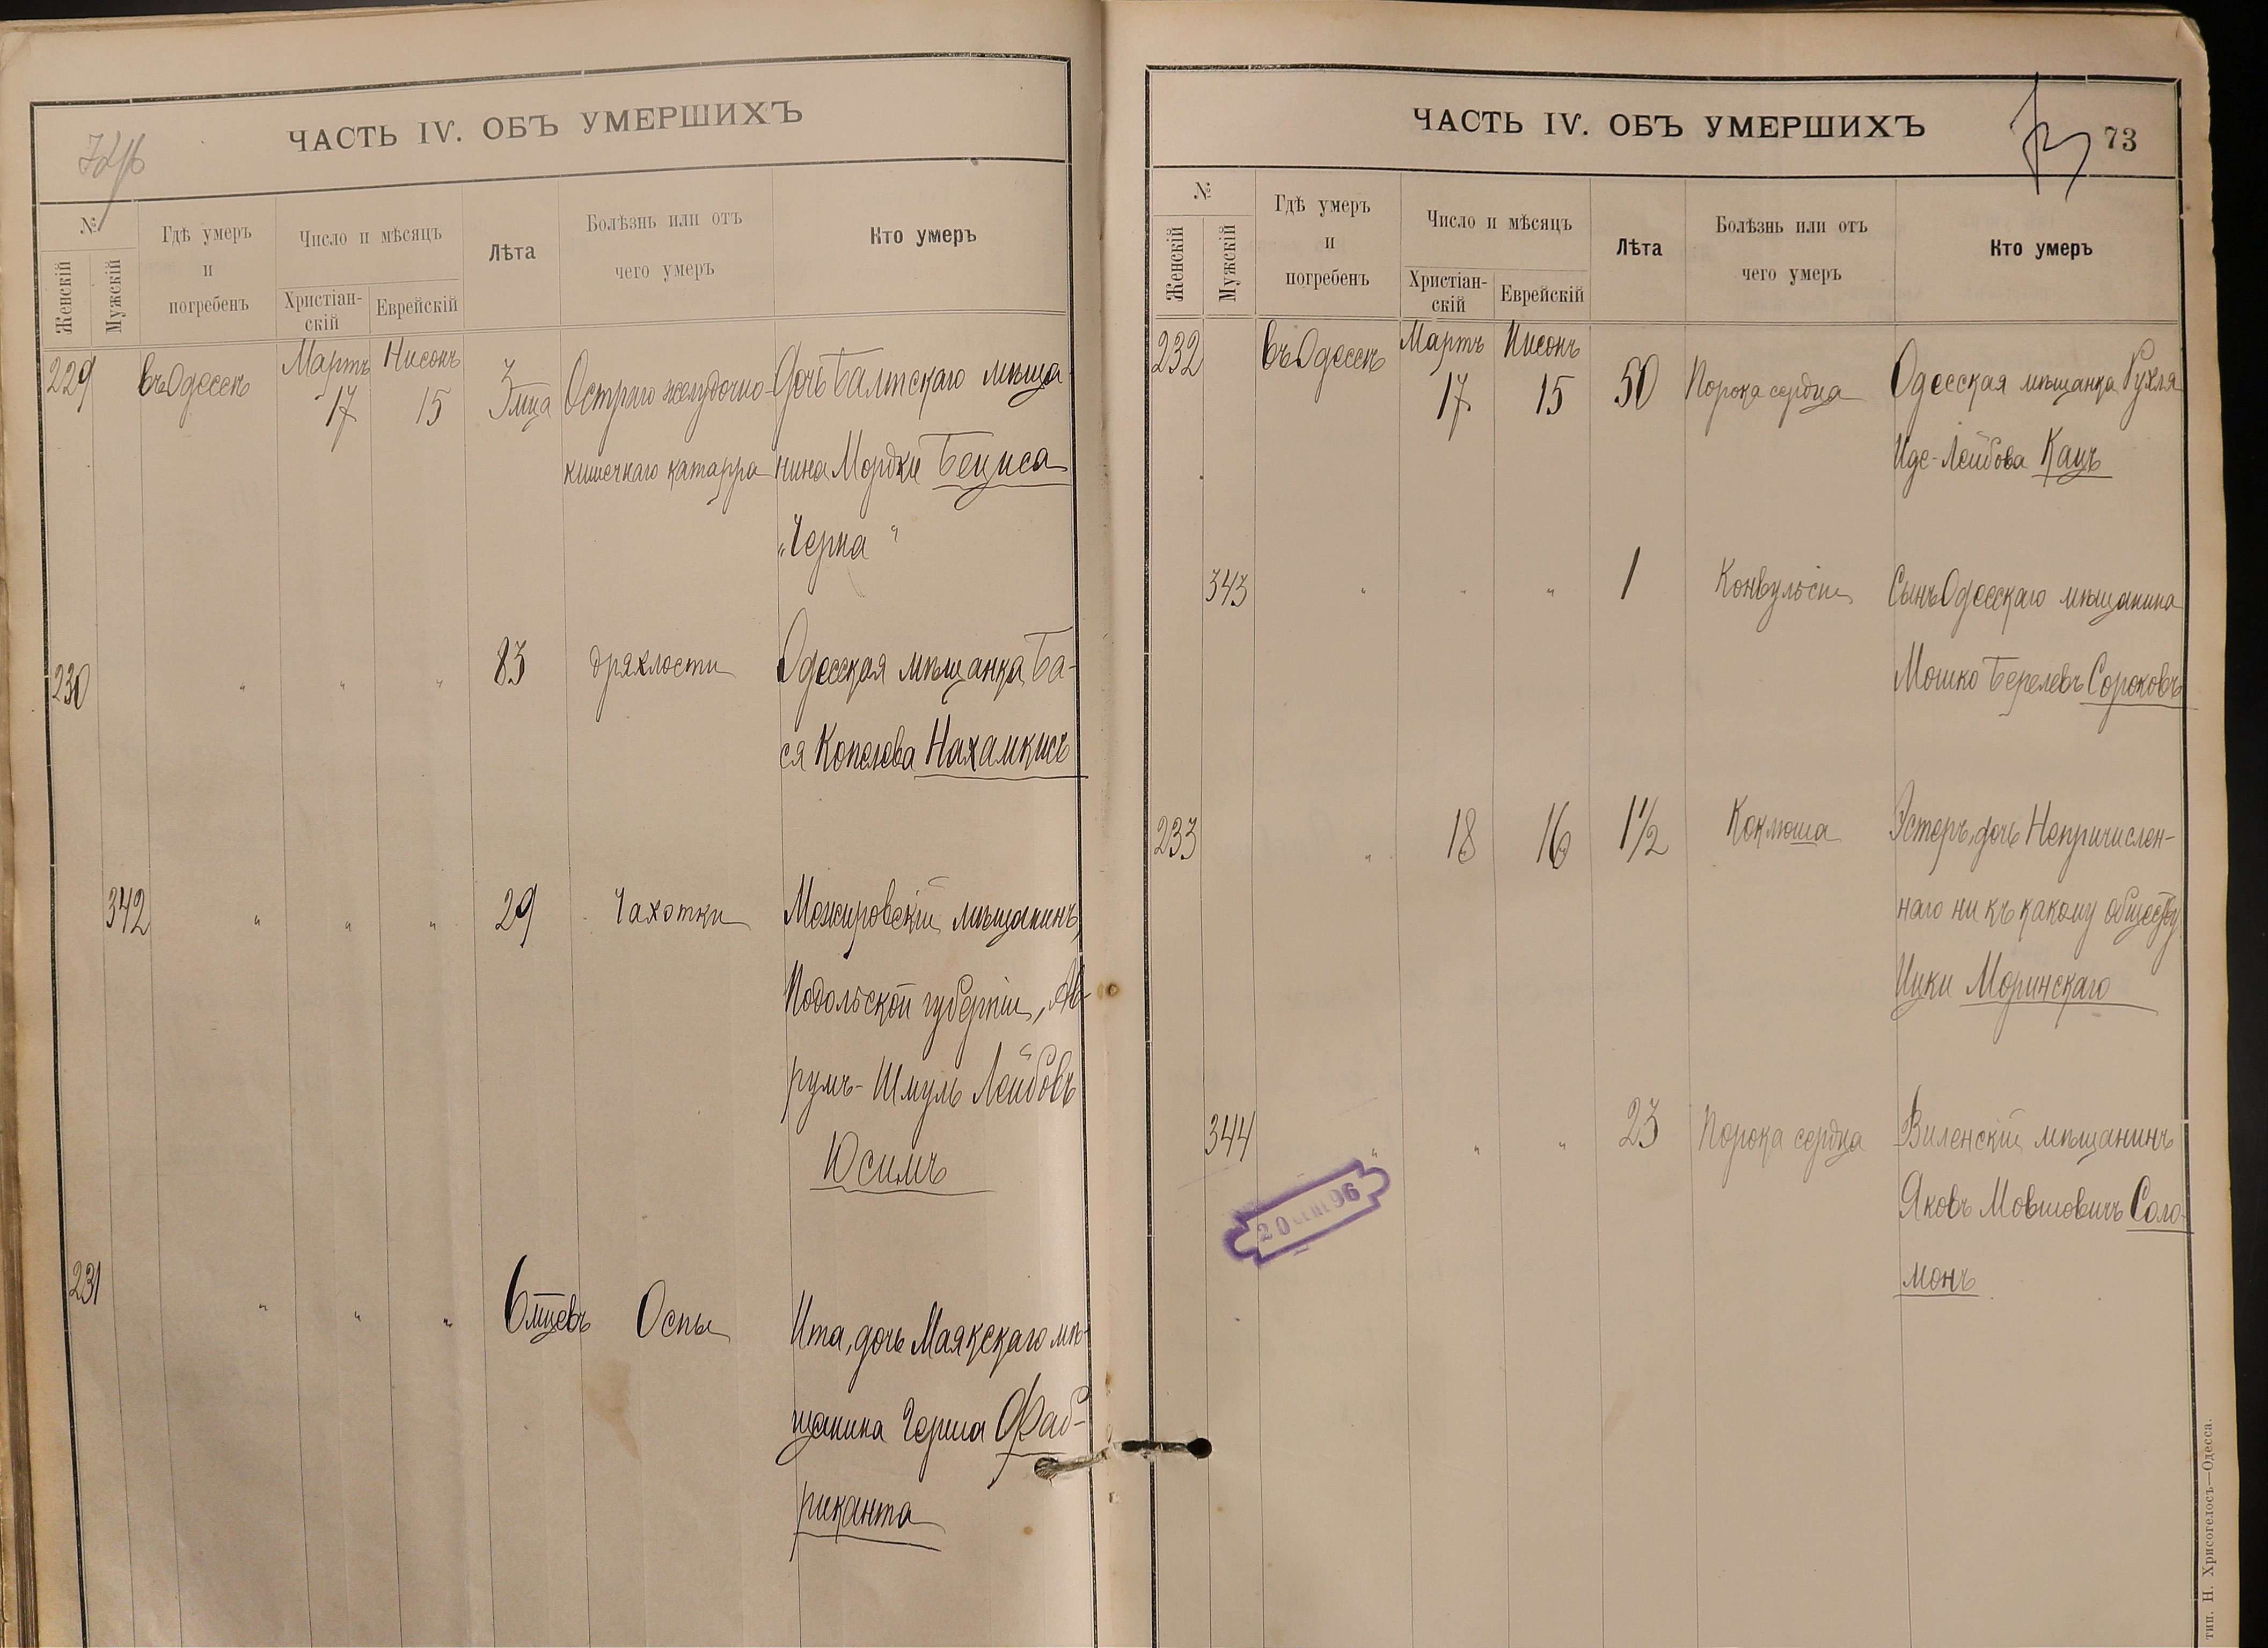 ЧАСТЬ IV. ОБЪ УМЕРШИХЪ
№
Женскій
Мужскій
Гдѣ умеръ
и
погребенъ
Число и мѣсяцъ
Христіан-
скій
Еврейскій
Лѣта
Болѣзнь или отъ
чего умеръ
Кто умеръ
229 въ Одессѣ Мартъ 17 Нисонъ 15 3 мца Остраго желудочно- Дочь Балтскаго мѣща-
кишечнаго катарра нина Мордки Бециса
„Черна“
230 " " " 83 дряхлости Одесская мѣщанка Ба-
ся Копелева Нахамкисъ
342 " " " 29 Чахотки Межировскій мѣщанинъ,
Подольской губерніи, Ав-
румъ-Шмуль Лейбовъ
Юсимъ
231 " " " 6 мцевъ Оспы Ита, дочь Маякскаго мѣ-
щанина Герша Фаб-
риканта
ЧАСТЬ IV. ОБЪ УМЕРШИХЪ
73
№
Женскій
Мужскій
Гдѣ умеръ
и
погребенъ
Число и мѣсяцъ
Христіан-
скій
Еврейскій
Лѣта
Болѣзнь или отъ
чего умеръ
Кто умеръ
232 въ Одессѣ Мартъ 17 Нисонъ 15 50 Порока сердца Одесская мѣщанка Рухля
Иде-Лейбова Кацъ
343 " " " 1 Конвульсіи Сынъ Одесскаго мѣщанина
Мошко Берелевъ Сороковъ
233 " 18 16 1½ Коклюша Эстеръ, дочь Непричислен-
наго ни къ какому обществу
Ицки Моринскаго
344 " " " 23 Порока сердца Виленскій мѣщанинъ
Яковъ Мовшовичъ Соло-
монъ
20 СЕН 96
тип. Н. Хрисогелосъ—Одесса.